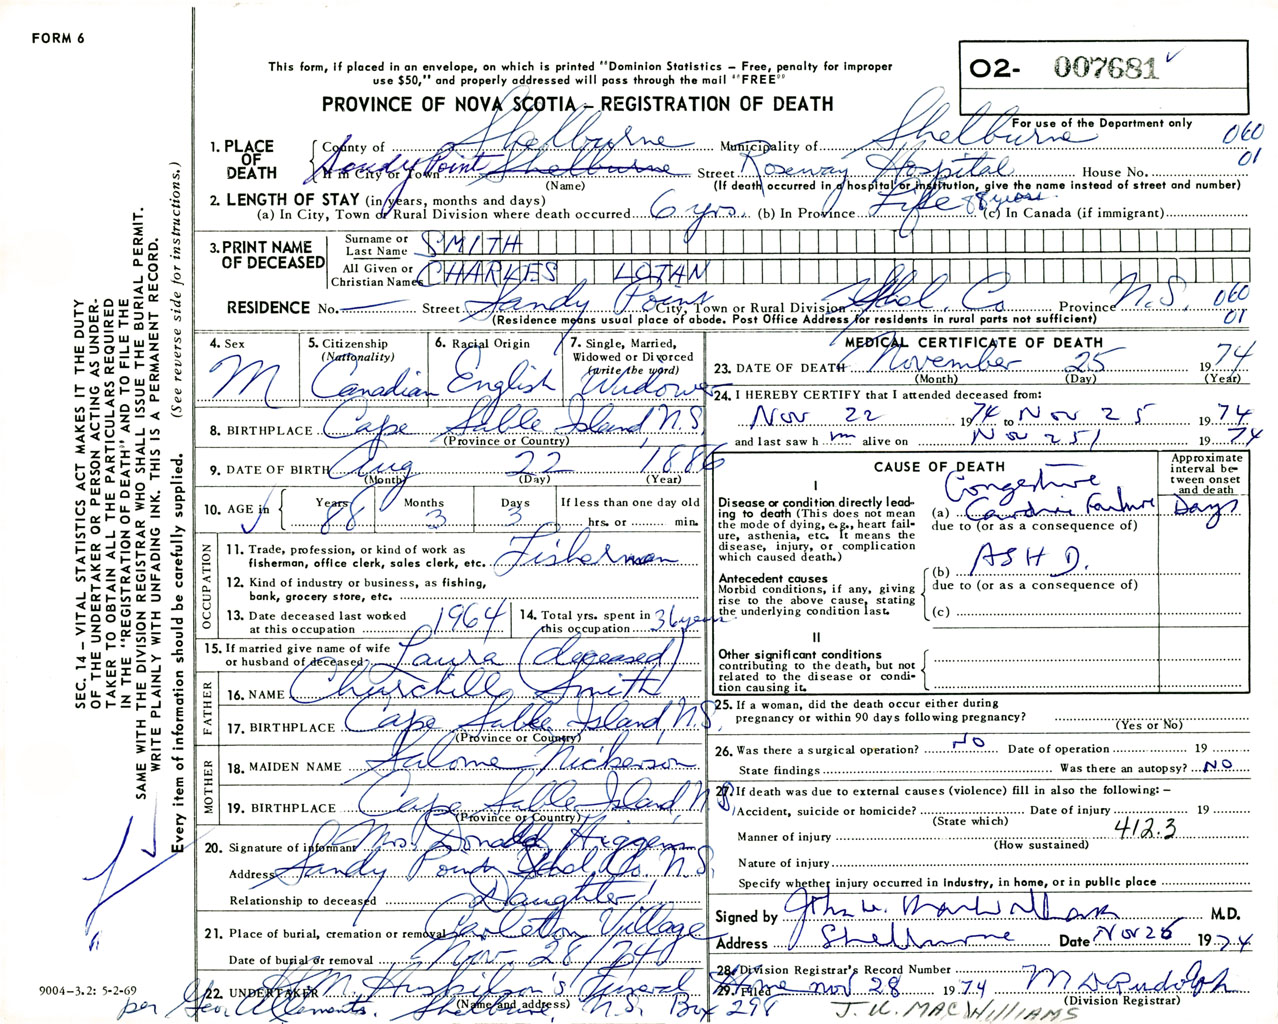 FORM 6
This form, if placed in an envelope, on which is printed "Dominion Statistics – Free, penalty for improper
use $50," and properly addressed will pass through the mail "FREE"
O2- 007681
PROVINCE OF NOVA SCOTIA – REGISTRATION OF DEATH
For use of the Department only
1. PLACE OF DEATH
County of Shelburne Municipality of Shelburne 060
If in City or Town Sandy Point Shelburne Street Roseway Hospital House No. 01
(Name) (If death occurred in a hospital or institution, give the name instead of street and number)
2. LENGTH OF STAY (in years, months and days)
(a) In City, Town or Rural Division where death occurred 6 yrs. (b) In Province Life 88 years (c) In Canada (if immigrant)
3. PRINT NAME OF DECEASED
Surname or Last Name SMITH
All Given or Christian Names CHARLES LOTAN
RESIDENCE No. — Street Sandy Point City, Town or Rural Division Shel. Co Province N.S. 060
(Residence means usual place of abode. Post Office Address for residents in rural parts not sufficient) 01
4. Sex M
5. Citizenship (Nationality) Canadian
6. Racial Origin English
7. Single, Married, Widowed or Divorced (write the word) Widower
8. BIRTHPLACE Cape Sable Island, N.S.
(Province or Country)
9. DATE OF BIRTH Aug 22 1886
(Month) (Day) (Year)
10. AGE in Years 88 Months 3 Days 3 If less than one day old
hrs. or min.
OCCUPATION
11. Trade, profession, or kind of work as fisherman, office clerk, sales clerk, etc. Fisherman
12. Kind of industry or business, as fishing, bank, grocery store, etc.
13. Date deceased last worked at this occupation 1964
14. Total yrs. spent in this occupation 36 years
15. If married give name of wife or husband of deceased Laura (deceased)
FATHER
16. NAME Churchill Smith
17. BIRTHPLACE Cape Sable Island, N.S.
(Province or Country)
MOTHER
18. MAIDEN NAME Salome Nickerson
19. BIRTHPLACE Cape Sable Island, N.S.
(Province or Country)
20. Signature of informant Mrs. Donald Higgens
Address Sandy Point Shel. Co. N.S.
Relationship to deceased Daughter
21. Place of burial, cremation or removal Carleton Village
Date of burial or removal Nov. 28/74
22. UNDERTAKER H.M. Huskilson's Funeral Home
(Name and address)
per Geo. Clements. Shelburne, N.S. Box 298
MEDICAL CERTIFICATE OF DEATH
23. DATE OF DEATH November 25 1974
(Month) (Day) (Year)
24. I HEREBY CERTIFY that I attended deceased from:
Nov 22 1974 to Nov 25 1974
and last saw h im alive on Nov 25 1974
CAUSE OF DEATH
Approximate interval between onset and death
I
Disease or condition directly leading to death (This does not mean the mode of dying, e.g., heart failure, asthenia, etc. It means the disease, injury, or complication which caused death.)
(a) Congestive Cardiac Failure Days
due to (or as a consequence of)
Antecedent causes
Morbid conditions, if any, giving rise to the above cause, stating the underlying condition last.
(b) ASHD.
due to (or as a consequence of)
(c)
II
Other significant conditions
contributing to the death, but not related to the disease or condition causing it.
25. If a woman, did the death occur either during pregnancy or within 90 days following pregnancy?
(Yes or No)
26. Was there a surgical operation? NO Date of operation 19
State findings Was there an autopsy? NO
27. If death was due to external causes (violence) fill in also the following: –
Accident, suicide or homicide? Date of injury 19
(State which) 412.3
Manner of injury
(How sustained)
Nature of injury
Specify whether injury occurred in Industry, in home, or in public place
Signed by John U. MacWilliams M.D.
Address Shelburne Date Nov 26 1974
28. Division Registrar's Record Number
29. Filed Nov 28 1974 M D Rudolph
(Division Registrar)
J. U. MACWILLIAMS
SEC. 14 – VITAL STATISTICS ACT MAKES IT THE DUTY
OF THE UNDERTAKER OR PERSON ACTING AS UNDER-
TAKER TO OBTAIN ALL THE PARTICULARS REQUIRED
IN THE "REGISTRATION OF DEATH" AND TO FILE THE
SAME WITH THE DIVISION REGISTRAR WHO SHALL ISSUE THE BURIAL PERMIT.
WRITE PLAINLY WITH UNFADING INK. THIS IS A PERMANENT RECORD.
Every item of information should be carefully supplied. (See reverse side for instructions.)
9004-3.2: 5-2-69